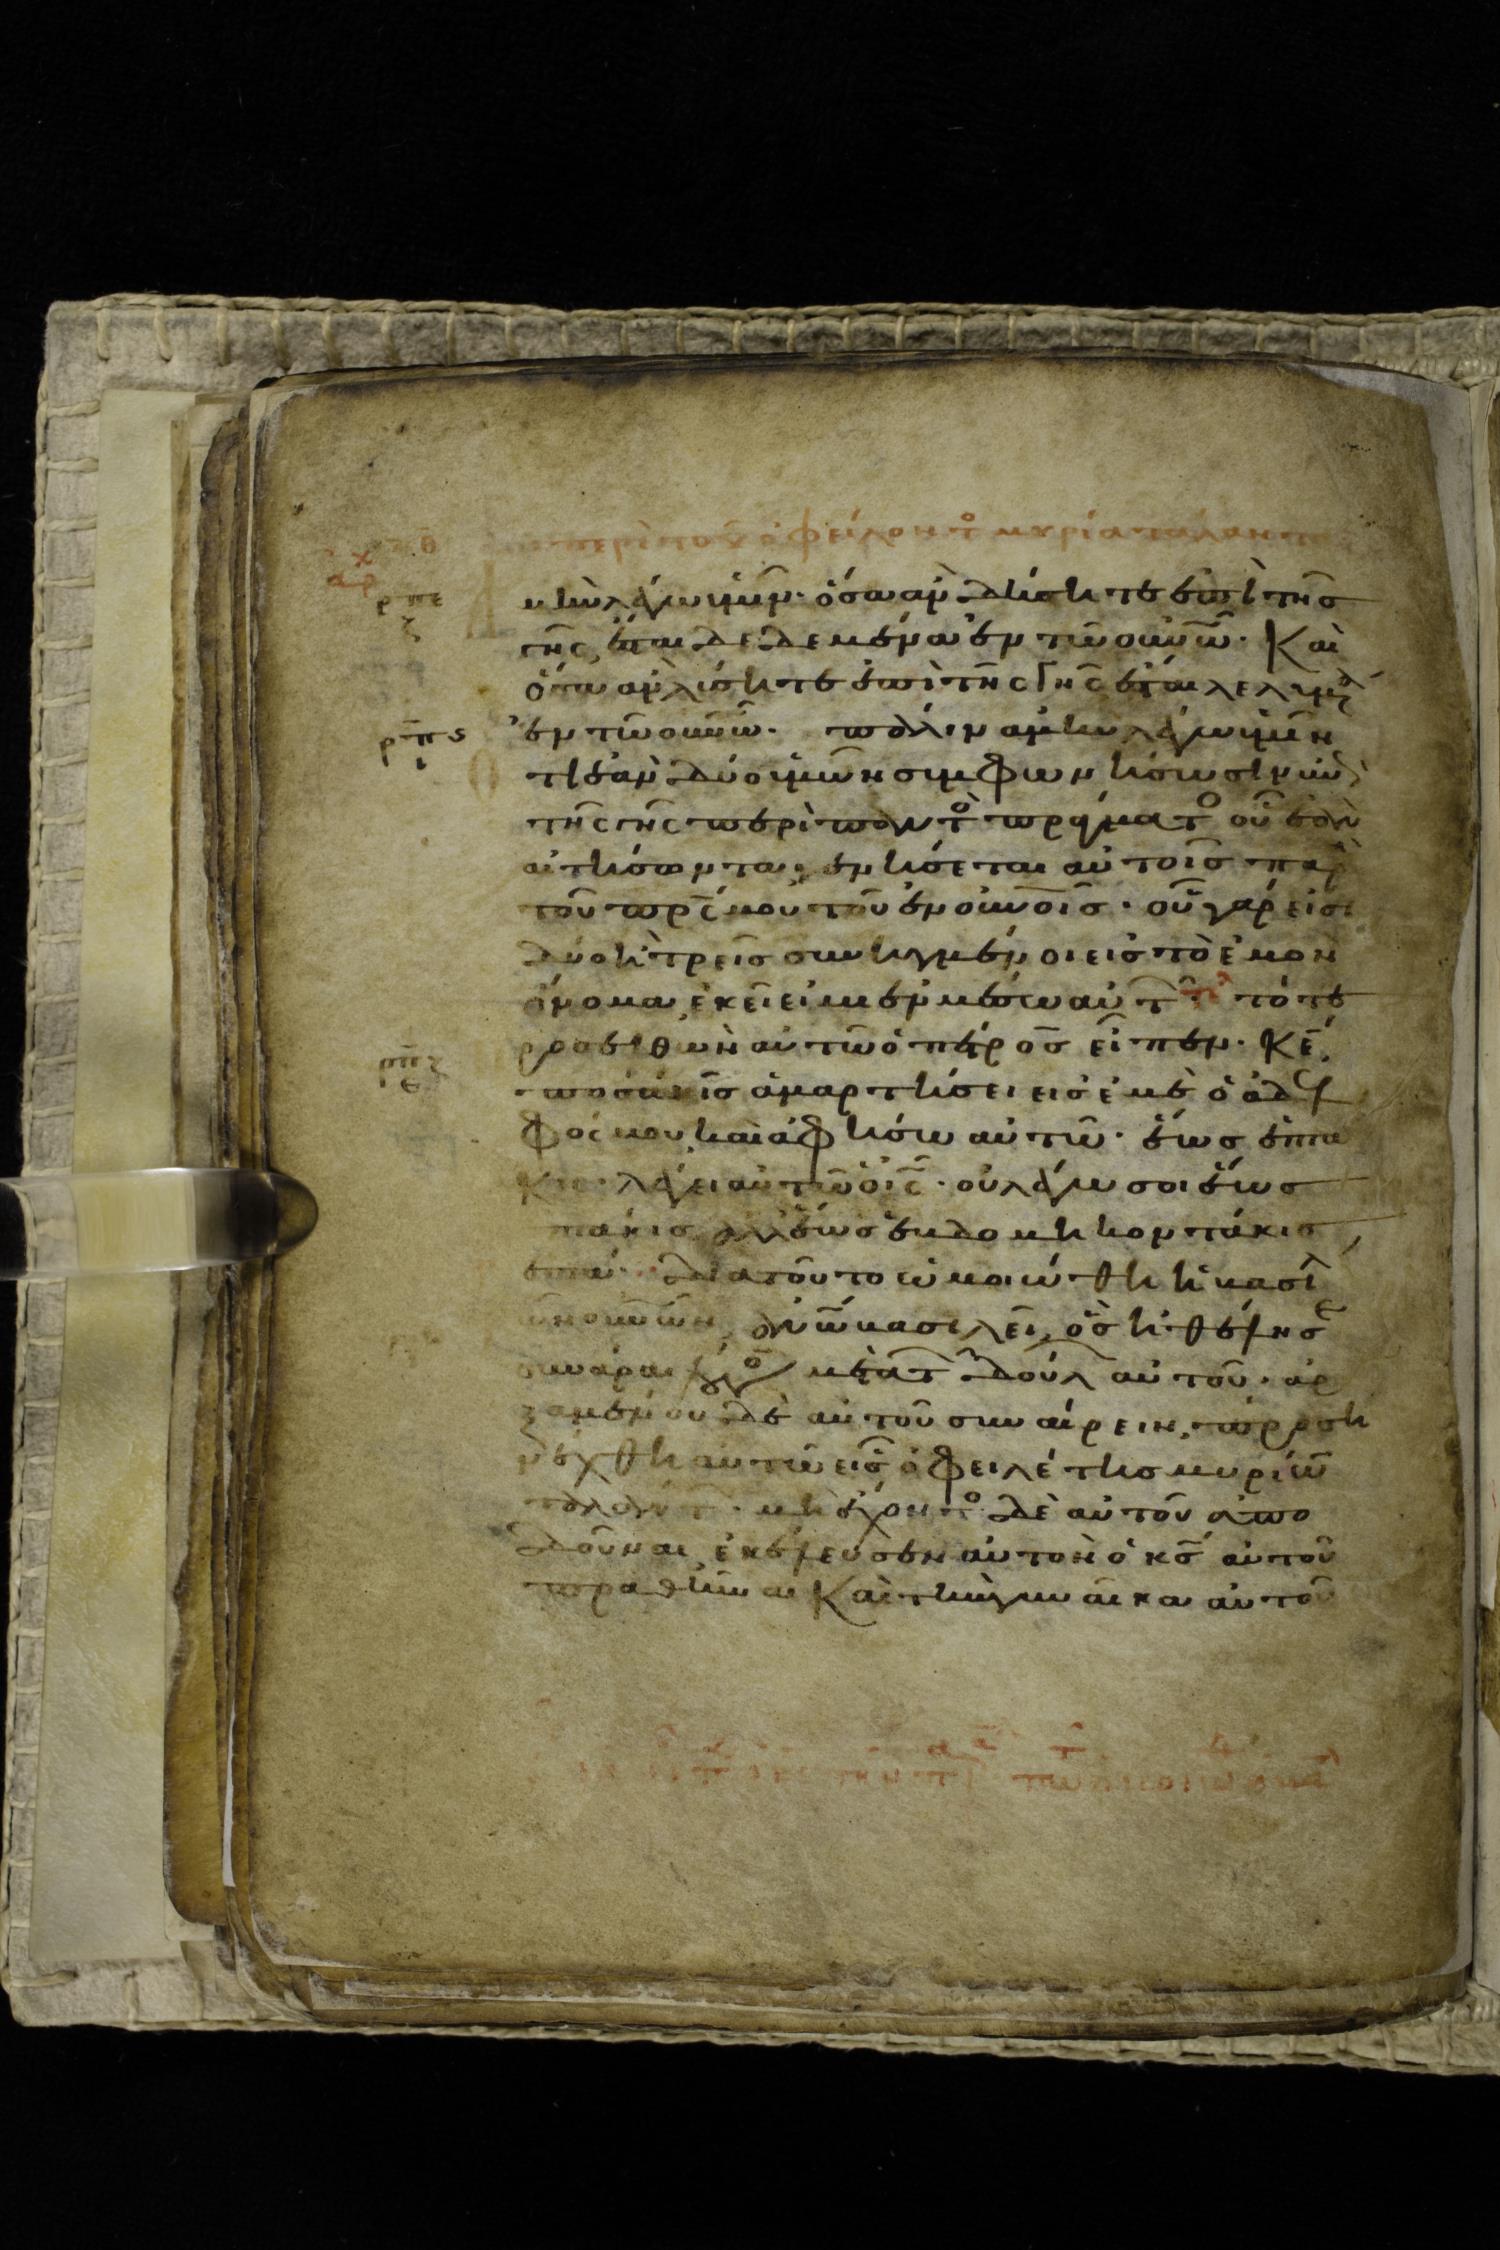 περὶ τοῦ ὀφείλοντο μυρία ταλαντα
μὴν λέγω ὑμῖν· ὅσα ἂν δήσητε ἐπὶ τῆς
γῆς ἔσται δεδεμένα ἐν τῶ οὐνῶ· Καὶ
ὅσα ἂν λύσητε ἐπὶ τῆς γῆς ἔσται λελυμέ
ρπε
ζ
ρπς
ι
ἐν τῶ οὐνῶ· πάλιν ἀμὴν λέγω ὑμῖν
τι ἐὰν δύο ὑμῶν συμφωνήσωσιν
τῆς γῆς περὶ παντὸ πράγματο οὗ ἐὰν
αἰτήσωνται, γενήσεται αὐτοῖς παρὰ
τοῦ πρς μου τοῦ ἐν οὐνοῖς· οὗ γάρ εἰσι
δύο ἢ τρεῖς συνηγμένοι εἰς τὸ ἐμὸν
ὄνομα, ἐκεῖ εἰμι ἐν μέσω αὐτ· τότε
ρπζ
ιε
προσελθὼν αὐτῶ ὁ πέτρος εἶπεν· Κε,
ποσάκις ἁμαρτήσει εἰς ἐμὲ ὁ ἀδελ
φός μου καὶ ἀφήσω αὐτῶ· ἕως ἑπτά
κις· λέγει αὐτῶ ὁ ις· οὐ λέγω σοι ἕως
πτάκις ἀλλ' ἕως ἑβδομηκοντάκις
ἑπτά· διὰ τοῦτο ὡμοιώθη ἡ βασι
τῶν οὐνῶν, ἀνω βασιλεῖ, ὃς ἠθέλησε
συνάραι λόγο μετὰ τ δούλ αὐτοῦ· ἀρ
ξαμένου δὲ αὐτοῦ συναίρειν, προση
νέχθη αὐτῶ εἷς ὀφειλέτης μυρίων
ταλάντ· μὴ ἔχοντο δὲ αὐτοῦ ἀπο
δοῦναι, ἐκέλευσεν αὐτὸν ὁ κς αὐτοῦ
πραθῆναι Καὶ τὴν γυναῖκα αὐτοῦ